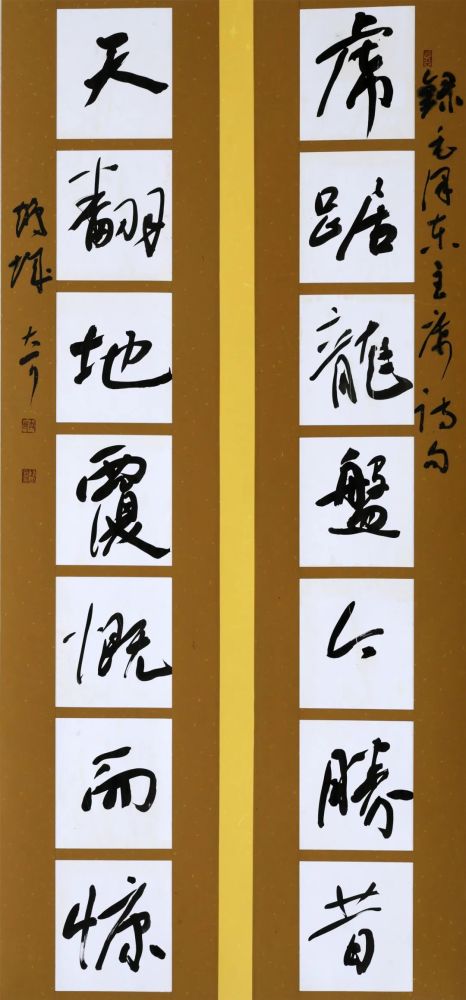 錄毛澤東主席詩句
虎踞龍盤今勝昔
天翻地覆慨而慷